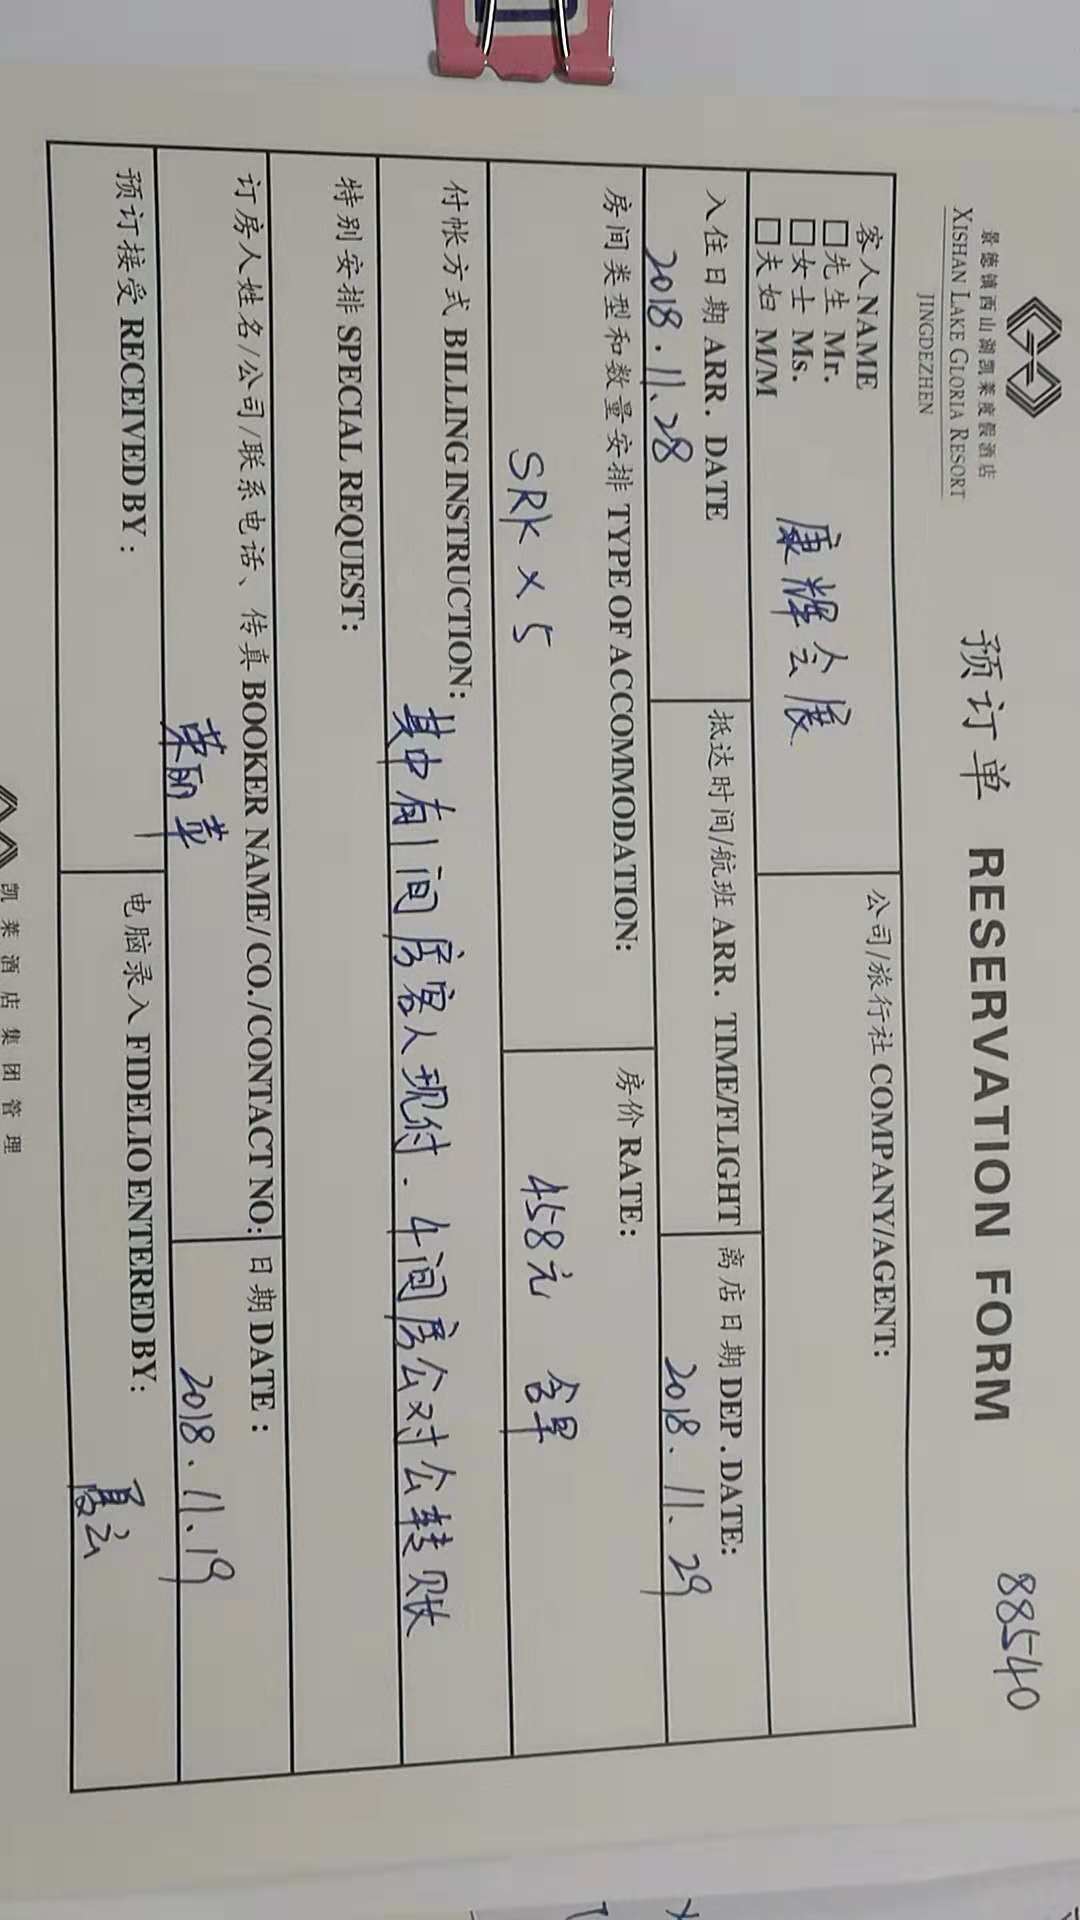 景德镇西山湖凯莱度假酒店
XISHAN LAKE GLORIA RESORT
JINGDEZHEN
预订单 RESERVATION FORM
88540
客人NAME
□先生 Mr.
□女士 Ms.
□夫妇 M/M
康辉会展
公司/旅行社 COMPANY/AGENT:
入住日期 ARR. DATE
2018.11.28
抵达时间/航班 ARR. TIME/FLIGHT
离店日期 DEP. DATE:
2018.11.29
房间类型和数量安排 TYPE OF ACCOMMODATION:
SRK × 5
房价 RATE:
458元 含早
付帐方式 BILLING INSTRUCTION:
其中有1间房客人现付.4间房公对公转账
特别安排 SPECIAL REQUEST:
订房人姓名/公司/联系电话、传真 BOOKER NAME/CO./CONTACT NO:
日期 DATE:
2018.11.19
预订接受 RECEIVED BY:
电脑录入 FIDELIO ENTERED BY:
凯莱酒店集团管理